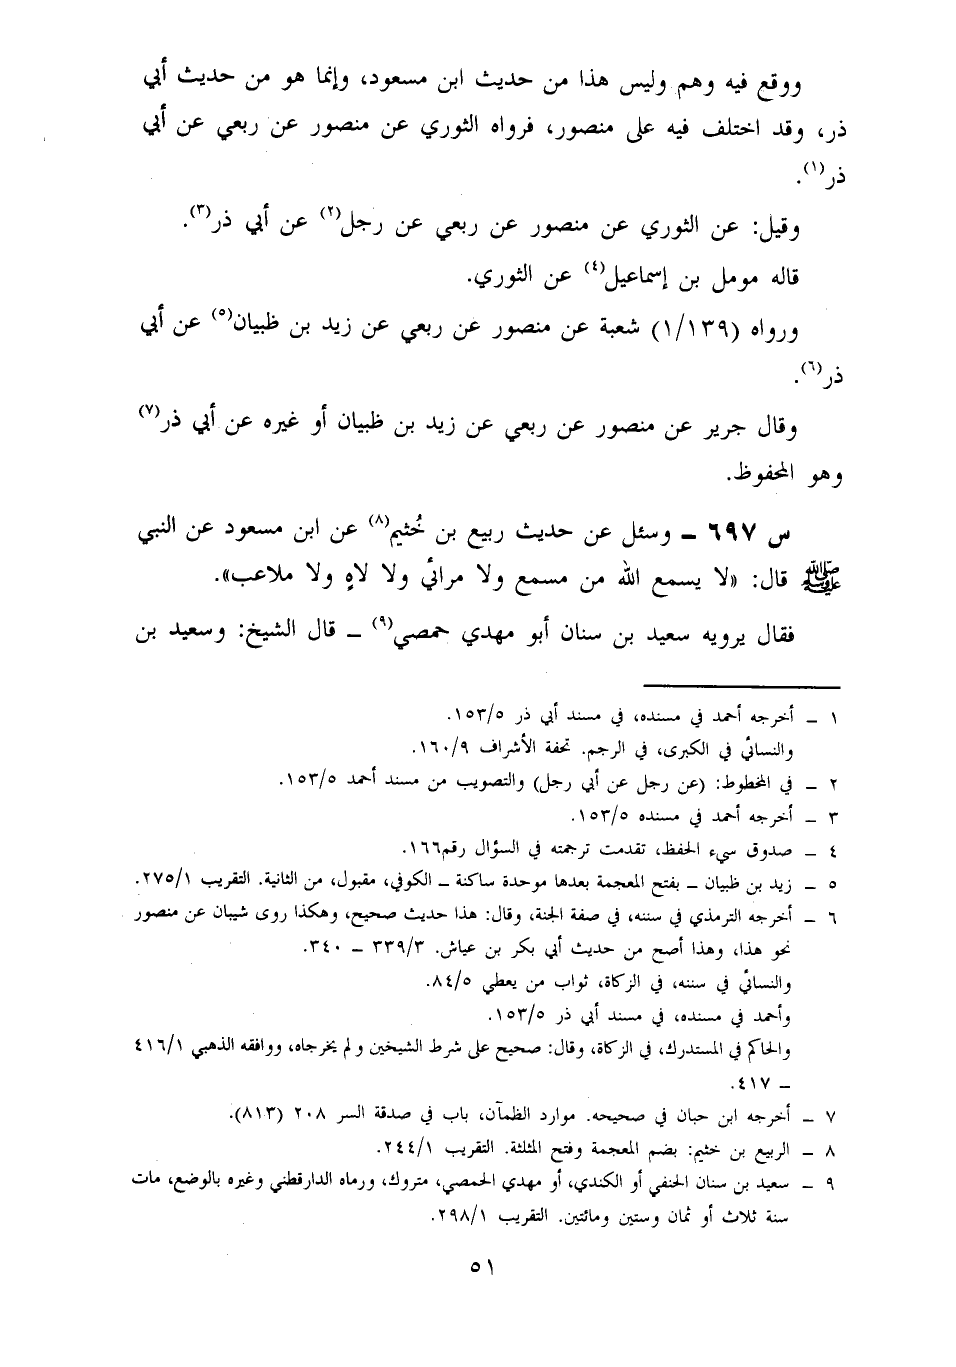 ووقع فيه وهم وليس هذا من حديث ابن مسعود، وإنما هو من حديث أبي
ذر، وقد اختلف فيه على منصور، فرواه الثوري عن منصور عن ربعي عن أبي
ذر(١).
وقيل: عن الثوري عن منصور عن ربعي عن رجل(٢) عن أبي ذر(٣).
قاله مومل بن إسماعيل(٤) عن الثوري.
ورواه (١/١٣٩) شعبة عن منصور عن ربعي عن زيد بن ظبيان(٥) عن أبي
ذر(٦).
وقال جرير عن منصور عن ربعي عن زيد بن ظبيان أو غيره عن أبي ذر(٧)
وهو المحفوظ.
س ٦٩٧ – وسئل عن حديث ربيع بن خُثيم(٨) عن ابن مسعود عن النبي
ﷺ قال: «لا يسمع الله من مسمع ولا مرائي ولا لاهٍ ولا ملاعب».
فقال يرويه سعيد بن سنان أبو مهدي حمصي(٩) – قال الشيخ: وسعيد بن
١ – أخرجه أحمد في مسنده، في مسند أبي ذر ١٥٣/٥.
والنسائي في الكبرى، في الرجم. تحفة الأشراف ١٦٠/٩.
٢ – في المخطوط: (عن رجل عن أبي رجل) والتصويب من مسند أحمد ١٥٣/٥.
٣ – أخرجه أحمد في مسنده ١٥٣/٥.
٤ – صدوق سيء الحفظ، تقدمت ترجمته في السؤال رقم١٦٦.
٥ – زيد بن ظبيان – بفتح المعجمة بعدها موحدة ساكنة – الكوفي، مقبول، من الثانية. التقريب ٢٧٥/١.
٦ – أخرجه الترمذي في سننه، في صفة الجنة، وقال: هذا حديث صحيح، وهكذا روى شيبان عن منصور
نحو هذا، وهذا أصح من حديث أبي بكر بن عياش. ٣٣٩/٣ – ٣٤٠.
والنسائي في سننه، في الزكاة، ثواب من يعطي ٨٤/٥.
وأحمد في مسنده، في مسند أبي ذر ١٥٣/٥.
والحاكم في المستدرك، في الزكاة، وقال: صحيح على شرط الشيخين ولم يخرجاه، ووافقه الذهبي ٤١٦/١
– ٤١٧.
٧ – أخرجه ابن حبان في صحيحه. موارد الظمآن، باب في صدقة السر ٢٠٨ (٨١٣).
٨ – الربيع بن خثيم: بضم المعجمة وفتح المثلثة. التقريب ٢٤٤/١.
٩ – سعيد بن سنان الحنفي أو الكندي، أو مهدي الحمصي، متروك، ورماه الدارقطني وغيره بالوضع، مات
سنة ثلاث أو ثمان وستين ومائتين. التقريب ٢٩٨/١.
٥١